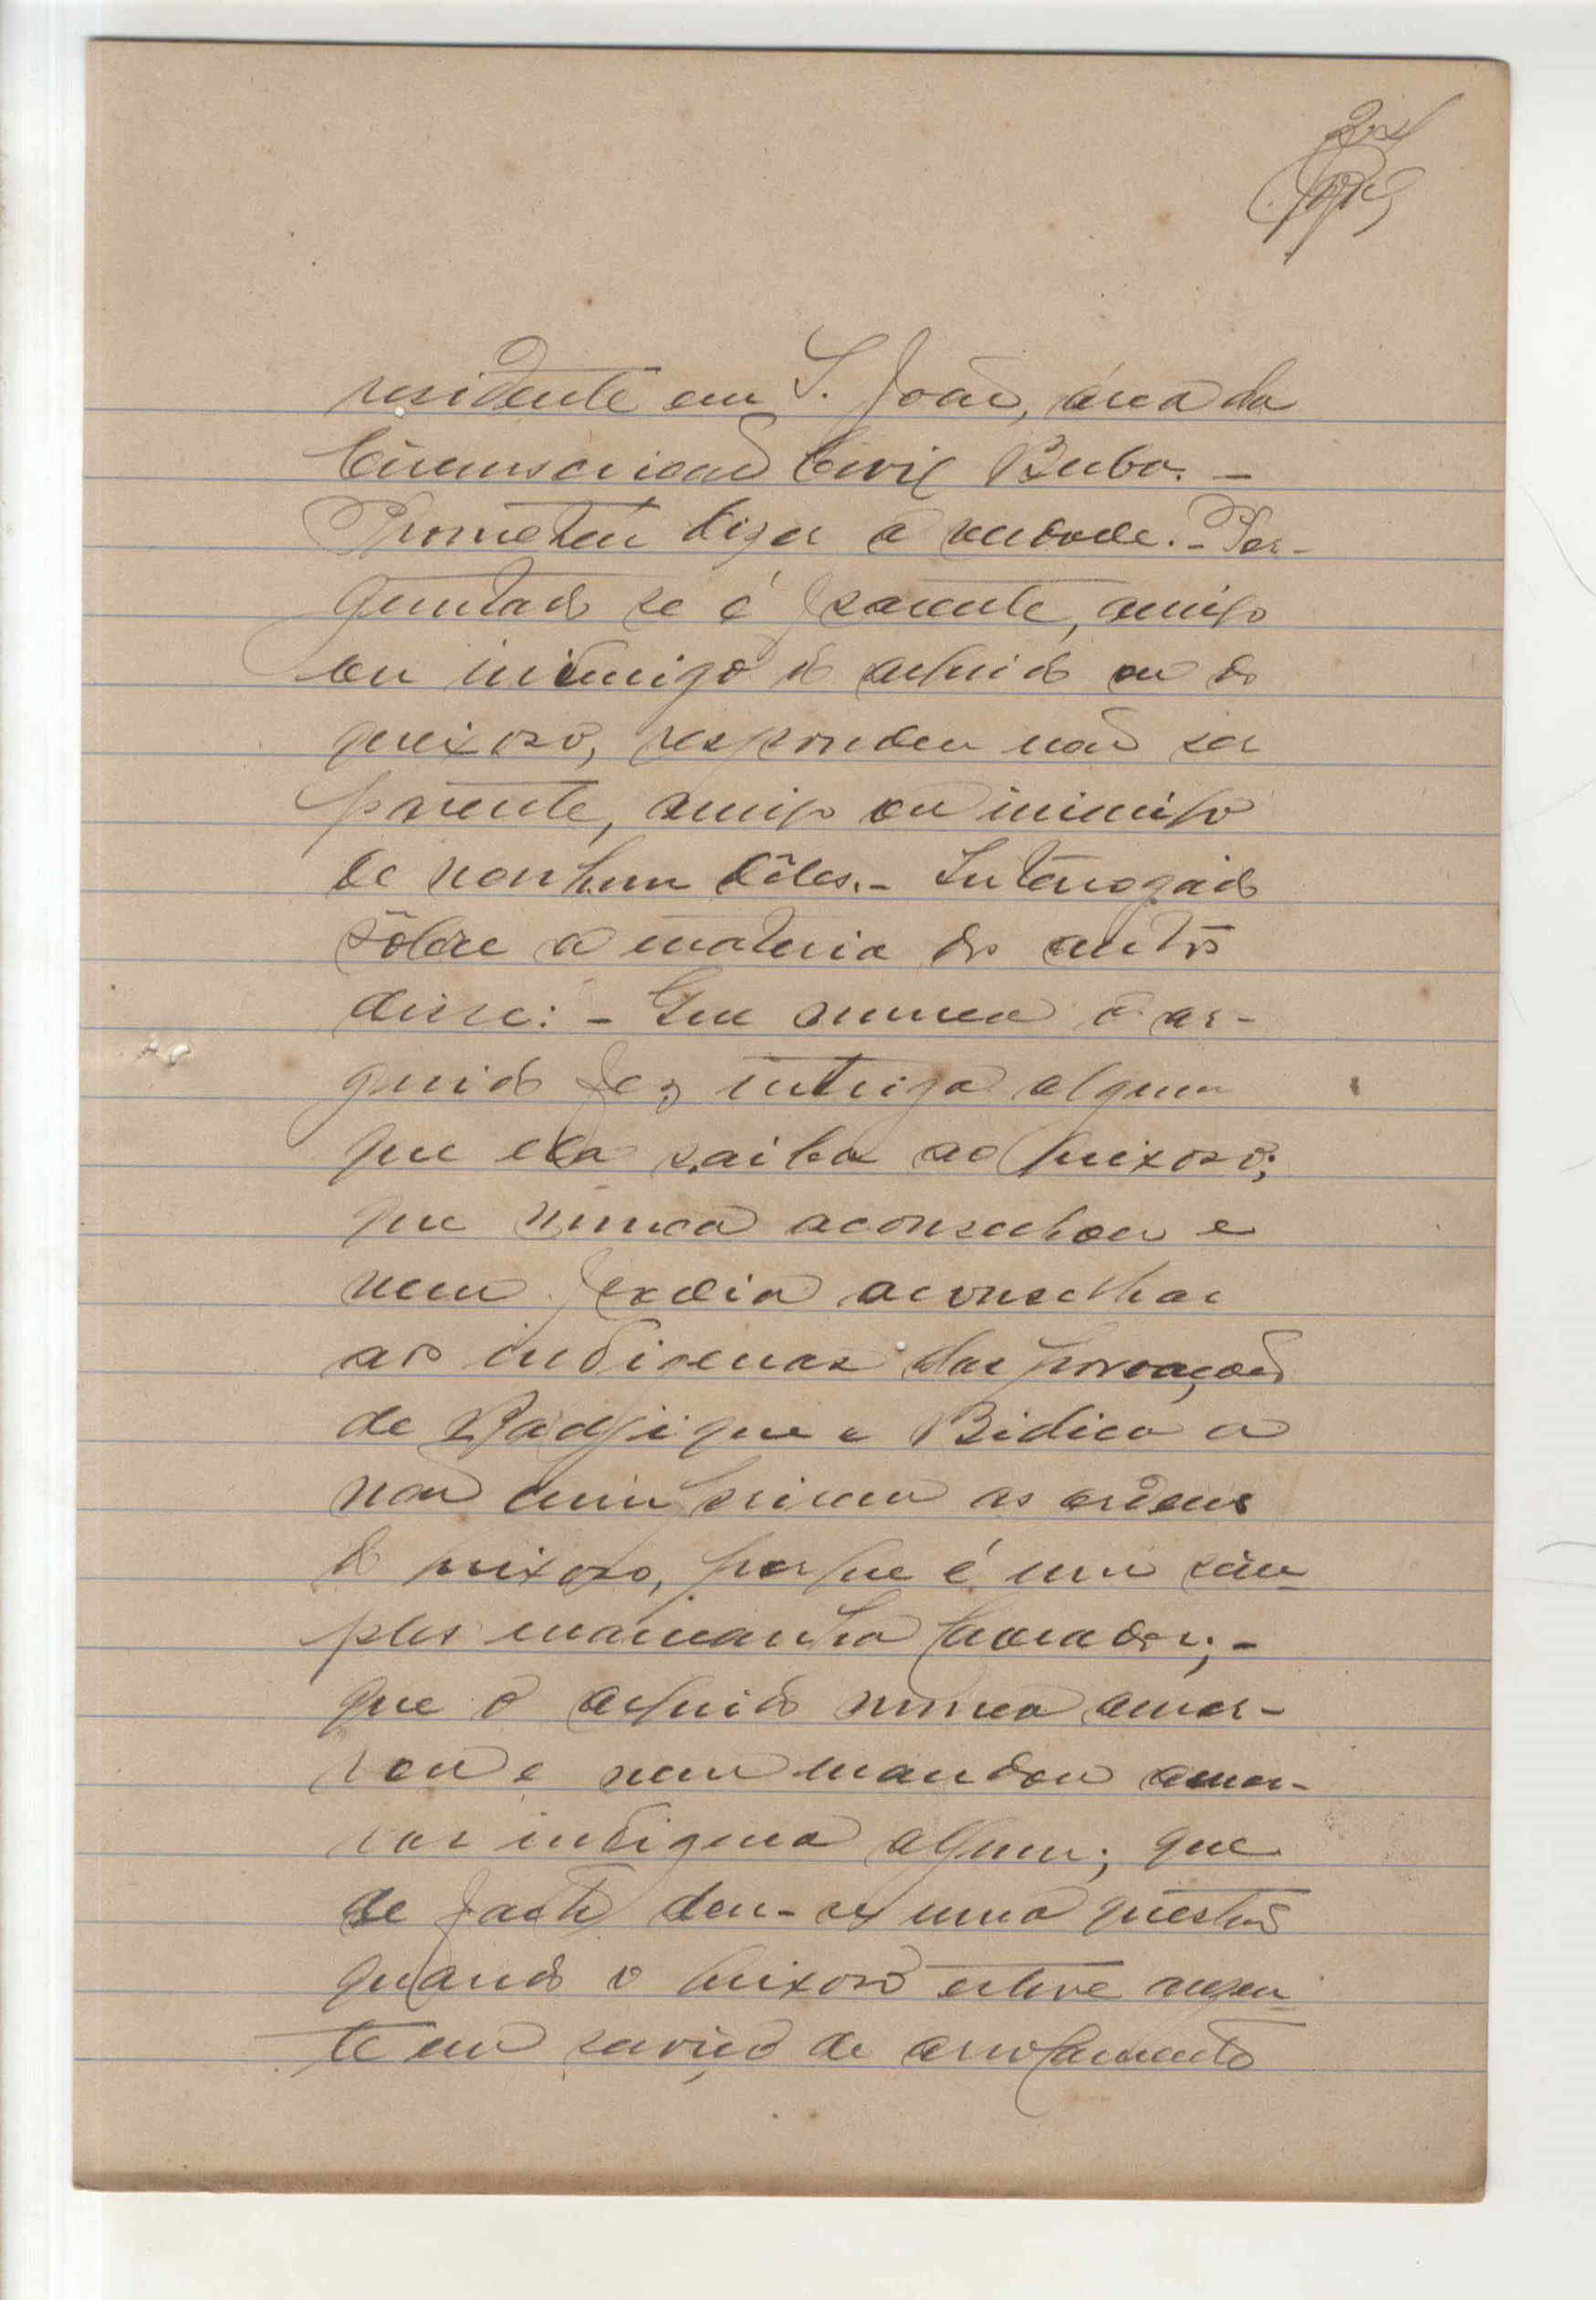 residente em S. João, área da
Circunscrição Civil Buba. -
Prometeu dizer a verdade. - Per-
guntado se é parente, amigo
ou inimigo do arguido ou do
queixoso, respondeu não ser
parente, amigo ou inimigo
de nenhum dêles. - Interrogado
sôbre a materia dos autos
disse: - Que nunca o ar-
guido fez intriga alguma
que ela saiba ao queixoso;
que nunca aconselhou e
nem podia aconselhar
aos indigenas das povoações
de e Bidica a
não cumprirem as ordens
do queixoso, porque é um sim-
ples mancanha lavrador; -
que o arguido nunca amar-
rou e nem mandou amar-
rar indigena algum; que
de facto deu-se uma questão
quando o queixoso esteve ausen-
te em serviço de arrolamento